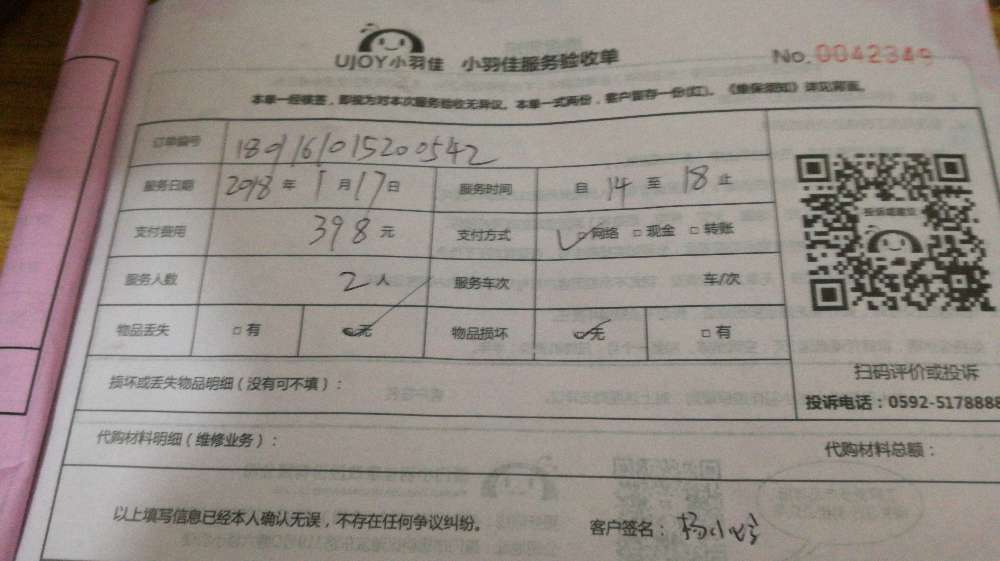 UJOY小羽佳 小羽佳服务验收单 No.0042349
本单一经核签，即视为对本次服务验收无异议。本单一式两份，客户留存一份(红)。《维保须知》详见背面。
订单编号 18011610152005​42
服务日期 2018年1月17日 服务时间 自14至18止
支付费用 398元 支付方式 ☑网络 □现金 □转账
投诉或建议
服务人数 2人 服务车次 车/次
物品丢失 □有 ☑无 物品损坏 ☑无 □有
扫码评价或投诉
损坏或丢失物品明细（没有可不填）：
投诉电话：0592-5178888
代购材料明细（维修业务）： 代购材料总额：
以上填写信息已经本人确认无误，不存在任何争议纠纷。 客户签名：杨小